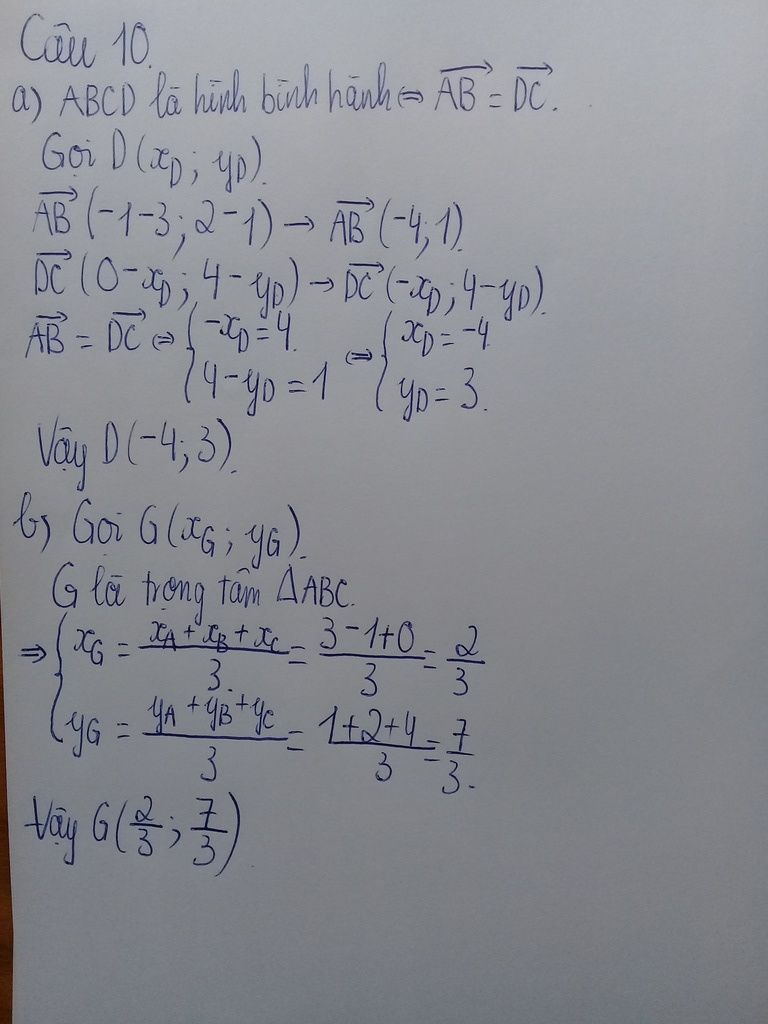 Câu 10.
a) ABCD là hình bình hành ⇔ $\overrightarrow{AB} = \overrightarrow{DC}$.
Gọi D($x_D$; $y_D$).
$\overrightarrow{AB}$ (-1-3; 2-1) → $\overrightarrow{AB}$ (-4; 1).
$\overrightarrow{DC}$ (0-$x_D$; 4-$y_D$) → $\overrightarrow{DC}$ (-$x_D$; 4-$y_D$).
$\overrightarrow{AB} = \overrightarrow{DC} ⇔ \begin{cases} -x_D = 4 \\ 4-y_D = 1 \end{cases} ⇔ \begin{cases} x_D = -4 \\ y_D = 3. \end{cases}$
Vậy D(-4; 3).
b) Gọi G($x_G$; $y_G$).
G là trọng tâm ΔABC.
$⇒ \begin{cases} x_G = \frac{x_A + x_B + x_C}{3} = \frac{3-1+0}{3} = \frac{2}{3} \\ y_G = \frac{y_A + y_B + y_C}{3} = \frac{1+2+4}{3} = \frac{7}{3}. \end{cases}$
Vậy G($\frac{2}{3}$; $\frac{7}{3}$)